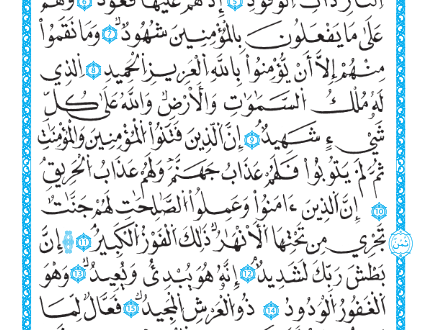 النَّارِ ذَاتِ ٱلْوَقُودِ ٥ إِذْ هُمْ عَلَيْهَا قُعُودٌ ٦ وَهُمْ
عَلَىٰ مَا يَفْعَلُونَ بِٱلْمُؤْمِنِينَ شُهُودٌ ٧ وَمَا نَقَمُوا۟
مِنْهُمْ إِلَّآ أَن يُؤْمِنُوا۟ بِٱللَّهِ ٱلْعَزِيزِ ٱلْحَمِيدِ ٨ ٱلَّذِى
لَهُۥ مُلْكُ ٱلسَّمَٰوَٰتِ وَٱلْأَرْضِ ۚ وَٱللَّهُ عَلَىٰ كُلِّ
شَىْءٍ شَهِيدٌ ٩ إِنَّ ٱلَّذِينَ فَتَنُوا۟ ٱلْمُؤْمِنِينَ وَٱلْمُؤْمِنَٰتِ
ثُمَّ لَمْ يَتُوبُوا۟ فَلَهُمْ عَذَابُ جَهَنَّمَ وَلَهُمْ عَذَابُ ٱلْحَرِيقِ
١٠ إِنَّ ٱلَّذِينَ ءَامَنُوا۟ وَعَمِلُوا۟ ٱلصَّٰلِحَٰتِ لَهُمْ جَنَّٰتٌ
تَجْرِى مِن تَحْتِهَا ٱلْأَنْهَٰرُ ۚ ذَٰلِكَ ٱلْفَوْزُ ٱلْكَبِيرُ ١١ إِنَّ
بَطْشَ رَبِّكَ لَشَدِيدٌ ١٢ إِنَّهُۥ هُوَ يُبْدِئُ وَيُعِيدُ ١٣ وَهُوَ
ٱلْغَفُورُ ٱلْوَدُودُ ١٤ ذُو ٱلْعَرْشِ ٱلْمَجِيدُ ١٥ فَعَّالٌ لِّمَا